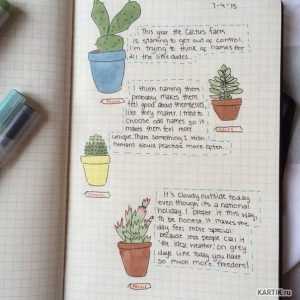 7-4-'15
This year the Cactus farm
is starting to get out of control.
I'm trying to think of names for
all the little dudes.
I think naming them
probably makes them
feel good about themselves,
like they matter. I tried to
choose odd names so it
makes them feel more
unique. Than something a
human would posses more often.
It's cloudy outside today
even though it's a national
holiday. I prefer it this way
to be honest. It makes the
day feel more special
because most people call it
"the ideal weather." on grey
days like today you have
so much more freedom!
KARTIK.ru